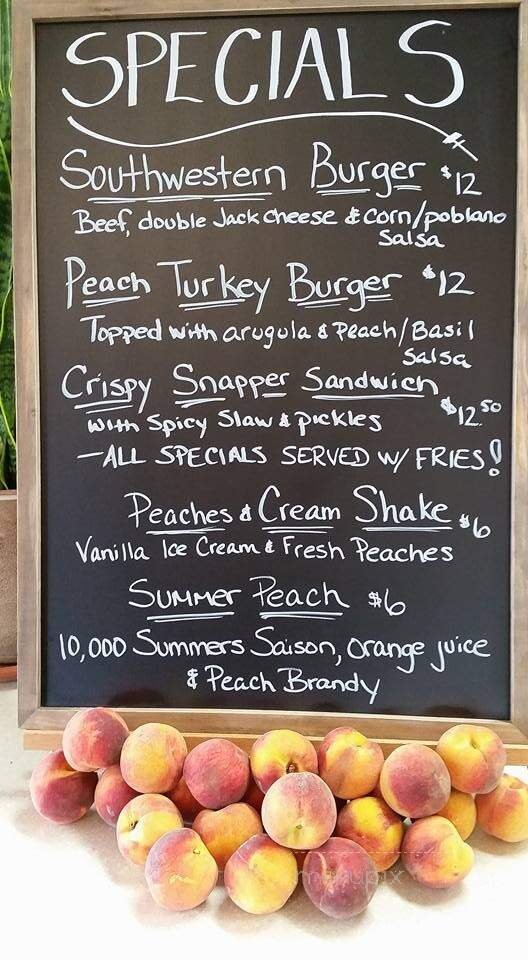 SPECIALS
Southwestern Burger $12
Beef, double Jack cheese & corn/poblano
Salsa
Peach Turkey Burger $12
Topped with arugula & Peach/Basil
Salsa
Crispy Snapper Sandwich
with Spicy Slaw & pickles $12.50
-ALL SPECIALS SERVED W/ FRIES!
Peaches & Cream Shake $6
Vanilla Ice Cream & Fresh Peaches
Summer Peach $6
10,000 Summers Saison, orange juice
& Peach Brandy